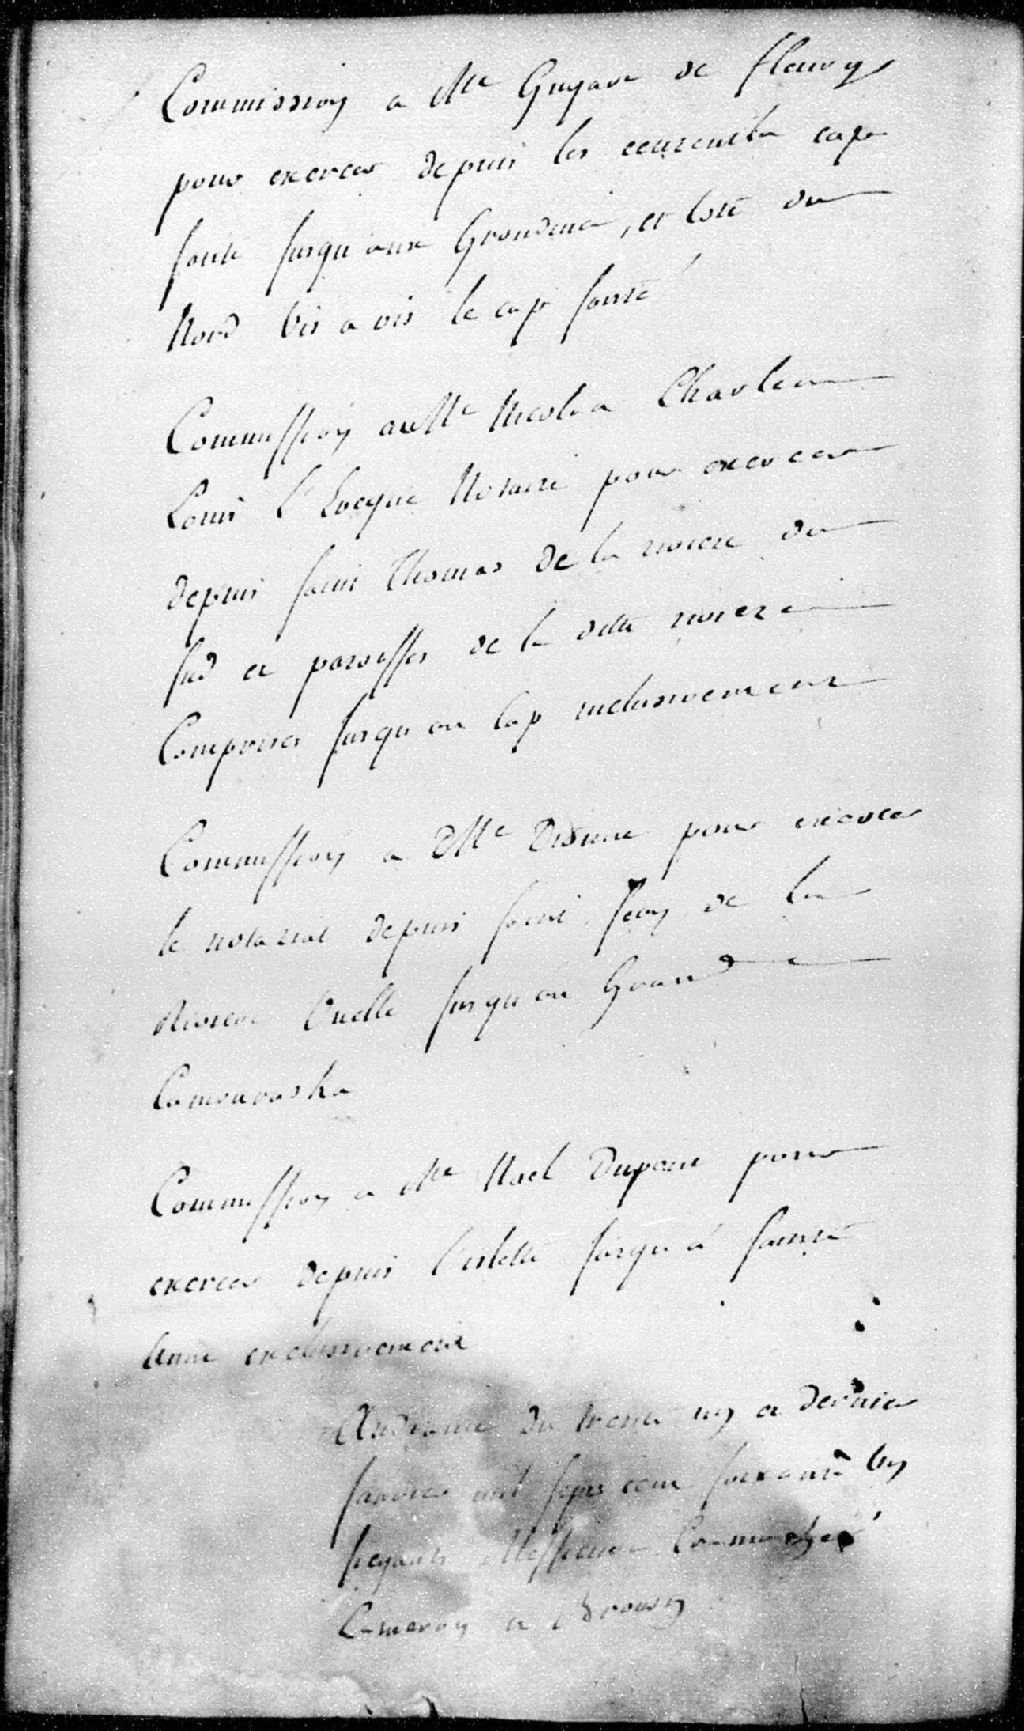 Commission a Me Guyart de fleury
pour exercer depuis les ecureuils cap
santé jusqu'aux Grondine, et Coté du
Nord vis a vis le cap santé
Commission a Me Nicolas Charles
Louis l'Evesque Notaire pour exercer
depuis saint Thomas de la riviere du
sud et paroisses de la ditte riviere
Comprises jusqu'au Cap inclusivement
Commission a Me Dionne pour exercer
le notariat depuis saint Jean de la
Riviere Ouelle jusqu'au Grand
Camouraska
Commission a Me Noel Dupont pour
exercer depuis l'islette jusqu'à sainte
Anne exclusivement
Audiance du trente un et dernier
janvier mil sept cent soixante un
seyants Messieurs
Cameron et